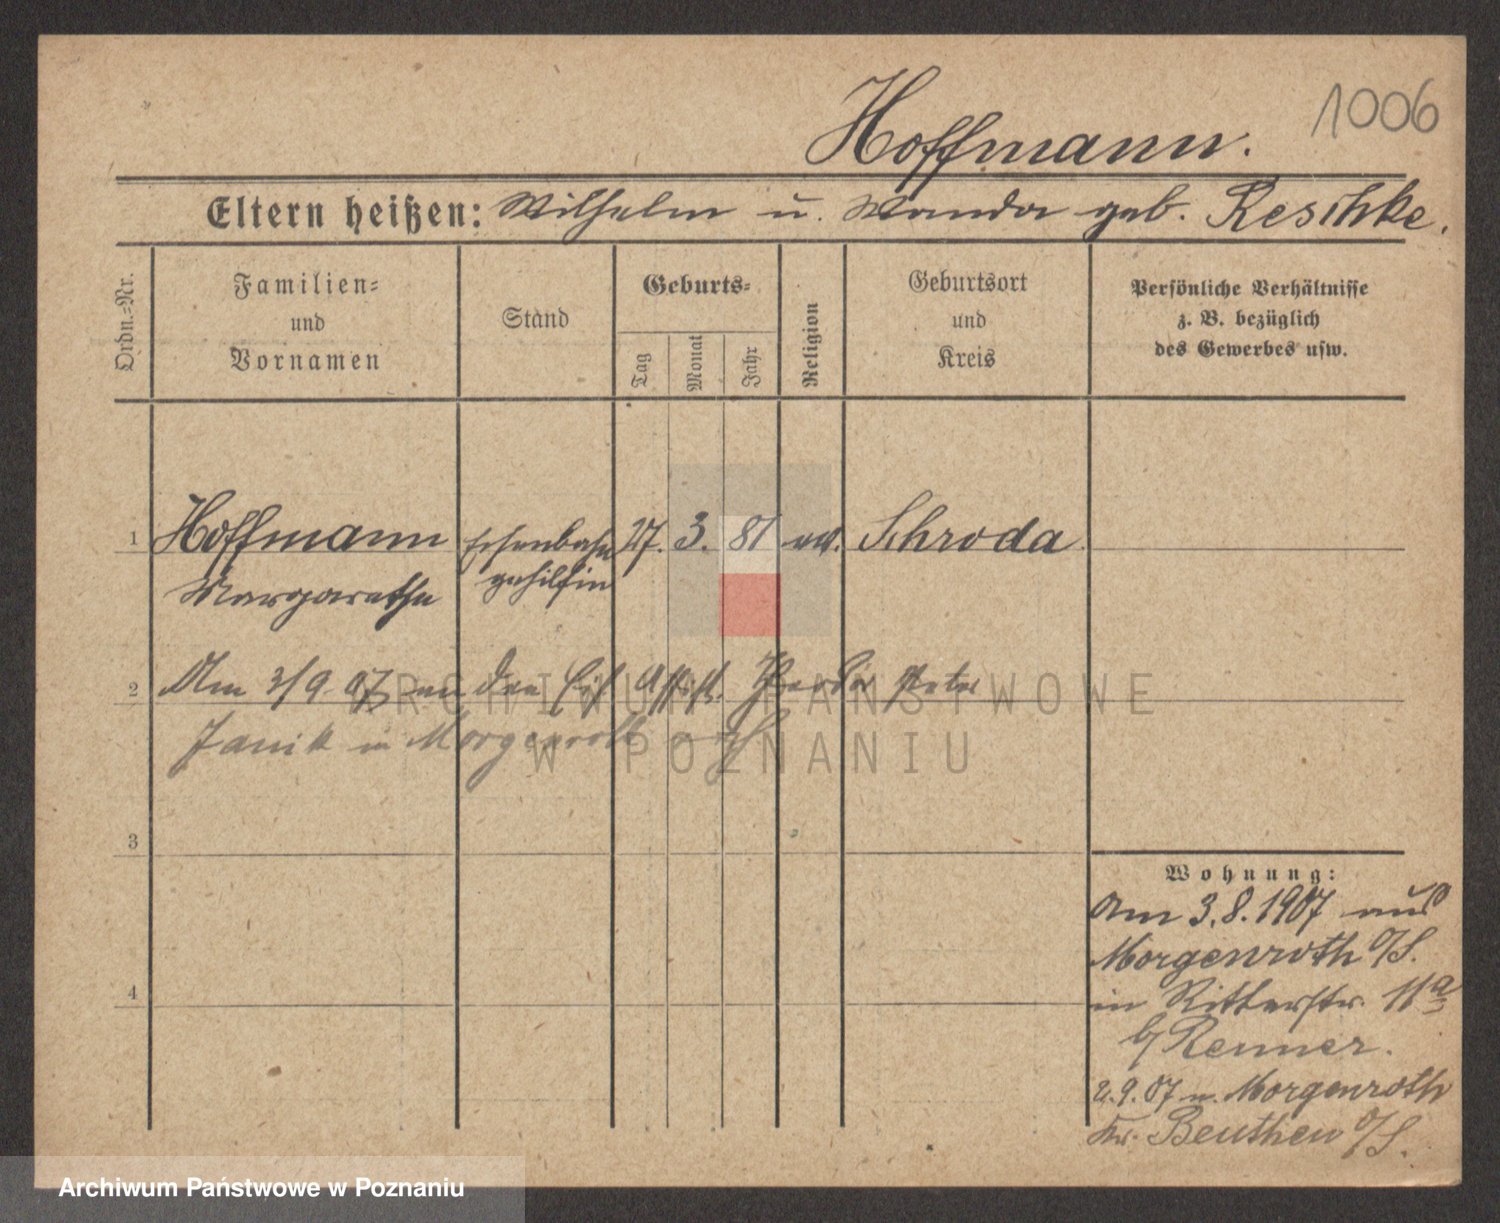 1006
Hoffmann.
Eltern heißen: Wilhelm u. Wanda geb. Reschke.
Ordn.=Nr.
Familien=
und
Vornamen
Stand
Geburts=
Tag
Monat
Jahr
Religion
Geburtsort
und
Kreis
Persönliche Verhältnisse
z. B. bezüglich
des Gewerbes usw.
1 Hoffmann Eisenbahn 27. 3. 81 ev. Schroda
Margarethe gehilfin
2 Am 3/9 07 an den Eis Assist. Theodor Peter
Janik in Morgenroth verh
3
4
Wohnung:
Am 3.8.1907 aus
Morgenroth O/S.
in Ritterstr. 11a
b/ Renner.
2.9.07 n. Morgenroth
Kr. Beuthen O/S.
ARCHIWUM PAŃSTWOWE
W POZNANIU
Archiwum Państwowe w Poznaniu